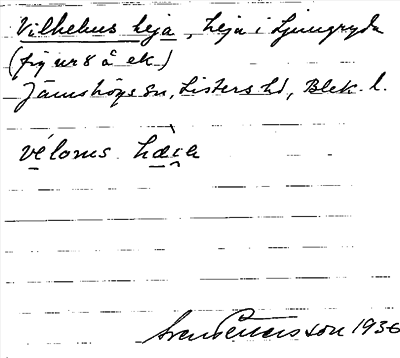 Vilhelms heja, heja i Ljungryda
(fig nr 8 å ek.)
Jämshögs sn, Listers hd, Blek. l.
véloms hæia
Sven Pettersson 1936